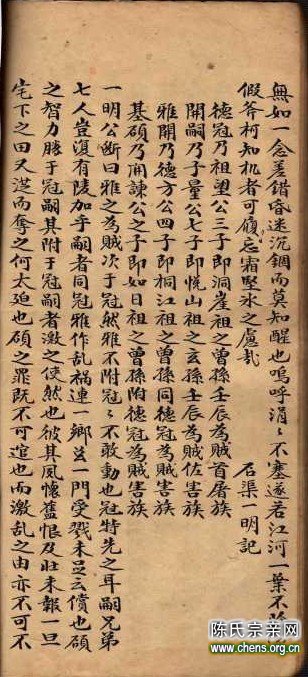 無如一念差錯昏迷沉錮而莫知醒也嗚呼涓〻不塞遂若江河一葉不
假斧柯知机者可履忘霜堅氷之慮哉　石渠一明記
德冠乃祖望公三子即洞崖祖之曾孫壬辰為賊首屠族
開嗣乃子量公七子即恍山祖之玄孫壬辰為賊佐害族
雅開乃德方公四子即桐江祖之曾孫同德冠為賊害族
基碩乃開諫公之子即如日祖之曾孫附德冠為賊害族
一明公斷曰雅之為賊次于冠然雅不附冠〻不敢動也冠特先之耳嗣兄弟
七人豈復有陵加乎嗣者同冠雅作乱禍連一鄉並一門受戮未足云償也碩
之智力勝于冠嗣其附于冠嗣者激之使然也彼其夙懷舊恨及壯未報一旦
宅下之田又謀而奪之何太迫也碩之罪既不可逭也而激乱之由亦不可不
陈氏宗亲网
www.chens.org.cn